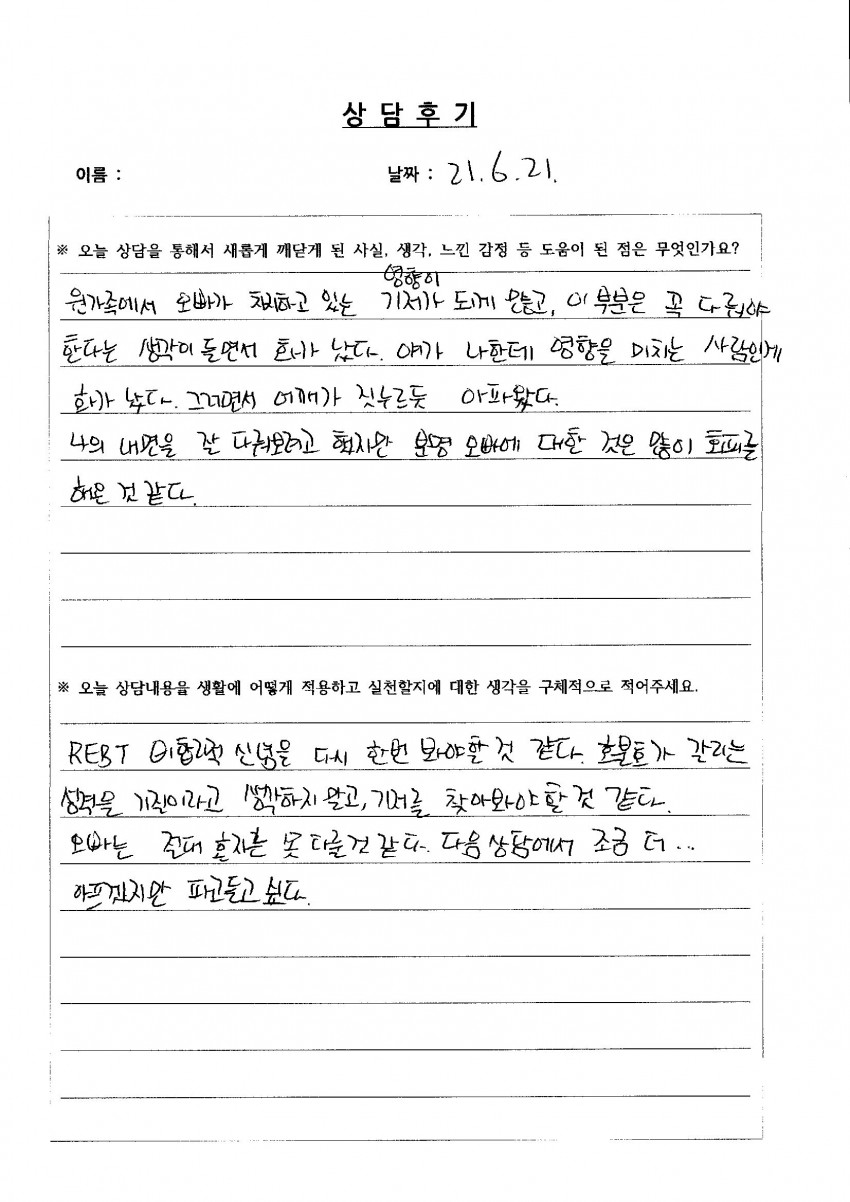 상 담 후 기
이름 :
날짜 : 21.6.21.
※ 오늘 상담을 통해서 새롭게 깨닫게 된 사실, 생각, 느낀 감정 등 도움이 된 점은 무엇인가요?
영향이
원가족에서 오빠가 차지하고 있는 기저가 되게 많고, 이 부분은 꼭 다뤄야
한다는 생각이 들면서 화가 났다. 얘가 나한테 영향을 미치는 사람인게
화가 났다. 그러면서 어깨가 짓누르듯 아파왔다.
나의 내면을 잘 다뤄보려고 했지만 분명 오빠에 대한 것은 많이 회피를
해온 것 같다.
※ 오늘 상담내용을 생활에 어떻게 적용하고 실천할지에 대한 생각을 구체적으로 적어주세요.
REBT 비합리적 신념을 다시 한번 봐야할 것 같다. 호불호가 갈리는
성격을 기질이라고 생각하지 말고, 기저를 찾아봐야 할 것 같다.
오빠는 절대 혼자흔 못 다룰것 같다. 다음 상담에서 조금 더...
아프겠지만 파고들고 싶다.